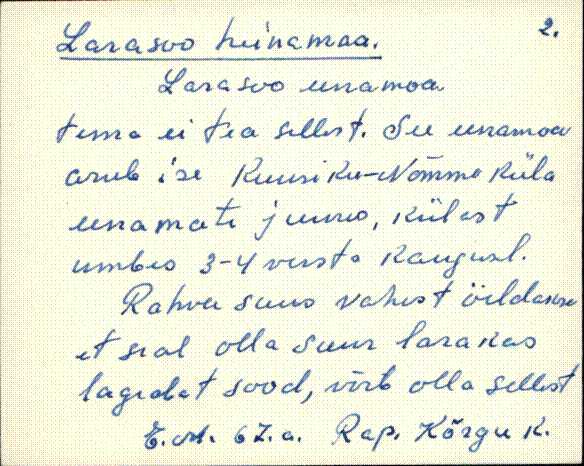 2.
Larasoo heinamaa.
Larasoo einamoa
tema ei tea sellest. See einamoa
arub ise Kuusiku-Nõmme küla
einamate juures, külast
umbes 3-4 versta kaugusel.
Rahva suus vahest öeldakse
et seal olla suur larakas
lagedat sood, võib olla sellest
E. 67.a. Rap. Kõrgu k.